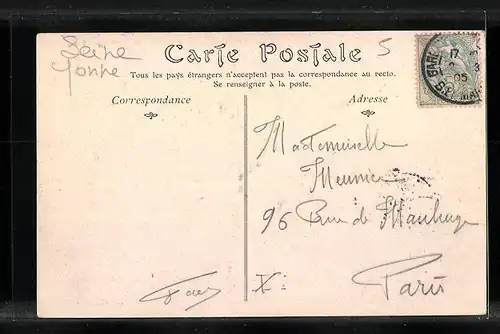 Seine
Yonne
5
Carte Postale
Tous les pays étrangers n'acceptent pas la correspondance au recto.
Se renseigner à la poste.
Correspondance
Adresse
17
05
Mademoiselle
Meunier
96 Rue de Maubeuge
Paris
X: